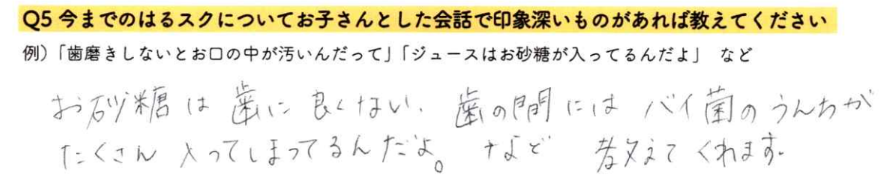 Q5 今までのはるスクについてお子さんとした会話で印象深いものがあれば教えてください
例）「歯磨きしないとお口の中が汚いんだって」「ジュースはお砂糖が入ってるんだよ」 など
お砂糖は歯に良くない。歯の間にはバイ菌のうんちが
たくさん入ってしまってるんだよ。など 教えてくれます。